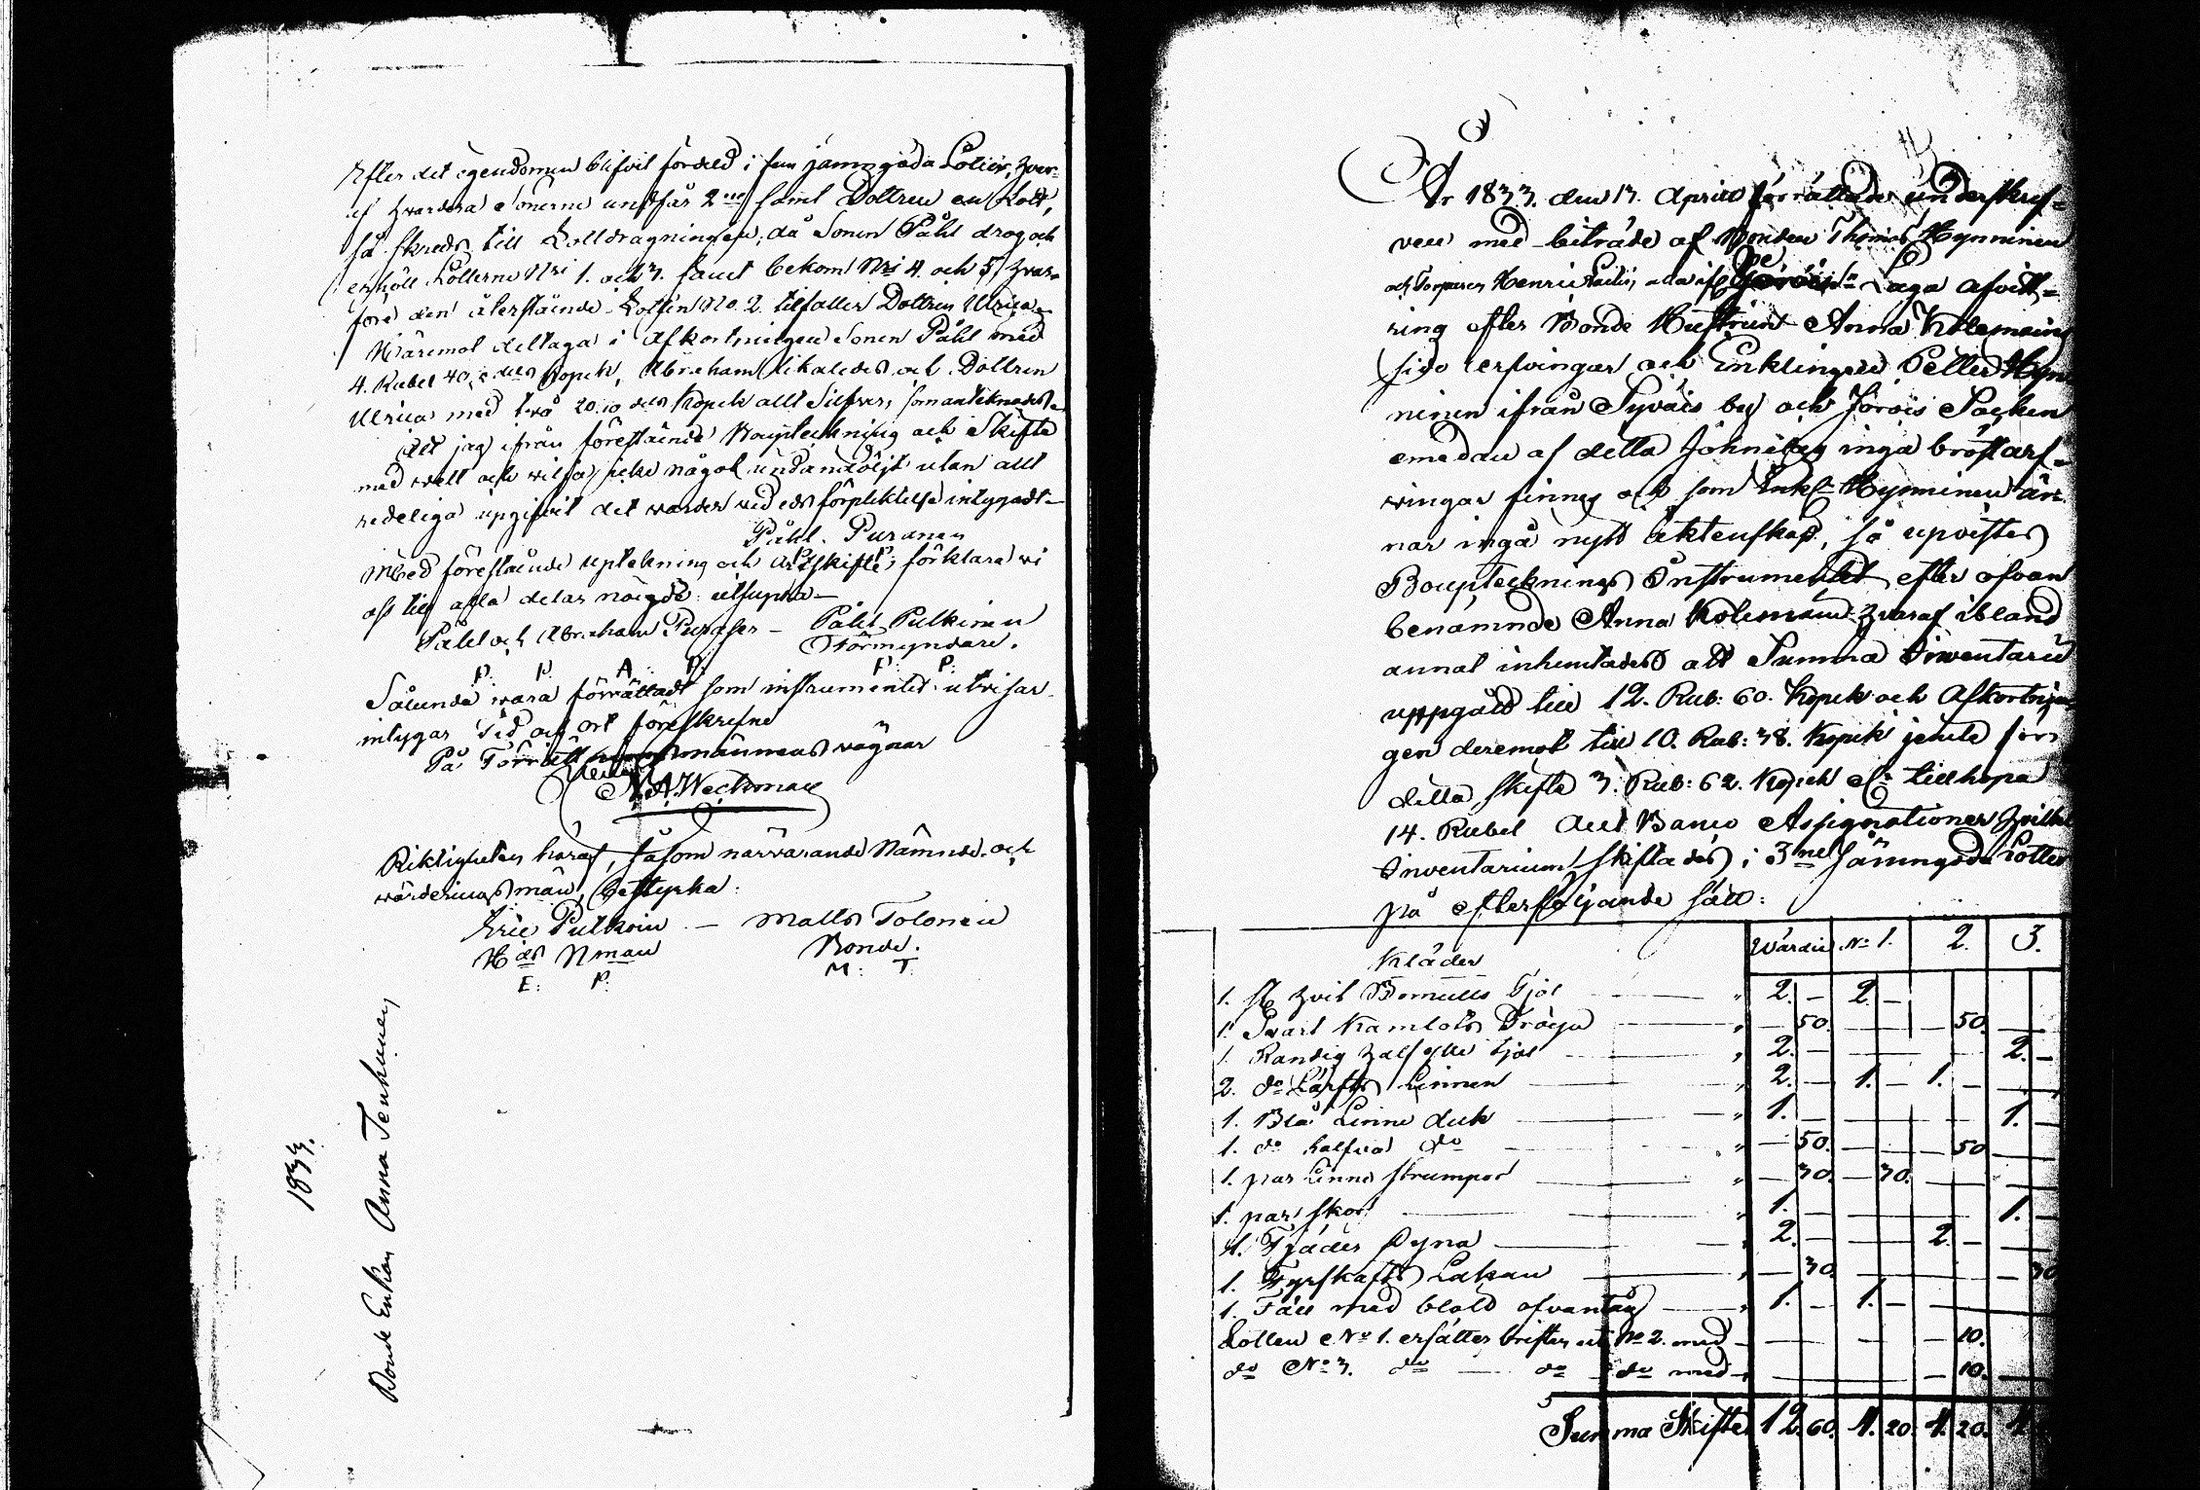 Efter det egendomen blifvit fördeld i fem jämngoda Lotter, hvar-
af hvardera Sönerne undfår 2ne samt Dottren en Lott,
så skreds till Lottdragningen, då Sonen Påhl drog och
erhöll Lotterne Nri 1. och 3. samt bekom Nri 4. och 5, hvar-
före den återstående Lotten No 2. tilfaller Dottren Ulrica.
Häremot deltaga i Afkortningen Sonen Påhl med
4. Rubel 40 Kopek, Abraham likaledes och Dottren
Ulrica med två 20 Kopek allt Silfver, som antecknades.
Att jag ifrån förestående Bouptekning och Skifte
med vett och vilja icke något undandöljt utan allt
redeliga upgifvit det varder vid eds förpliktelse intygadt.
Påhl Puranen
P. P.
Med förestående uptekning och arfskifte, förklara vi
oss till alla delar nögde utsupra —
Påhl och Abraham Puraser — Påhl Pulkinen
Förmyndare.
P: P: A: P: P: P:
Sålunda vara förrättadt som instrumentet utvisar
intygar Tid och ort föreskrefne
På Förrättningsmännens vägnar
N. A. Weckman
Riktigheten häraf, såsom närvarande Nämnde- och
värderingsmän, bestyrka:
Eric Pulkein — Matts Tolonen
Hds Nman Bonde.
E: P: M: T:
1833.
Bonde Enkan Anna Tenhunen
År 1833. den 13. Aprill förrättade underskref-
ven med biträde af Bonden Thomas Hynninen
och Torparen Henric Laga afvitt-
ring efter Bonde Hustrun Anna Kolemain
sido erfvingar och Enklingen Petter Hyn
ninen ifrån Syväis by och Jorois Sochen
emedan af detta Johnieleg inga bröstarf-
vingar finnes och som Enkl: Hynninen är
nar ingå nytt äktenskap, så upvistes
Bouptecknings Instrumentet efter ofvan
benämnde Anna Kolemain hvaraf ibland
annat inhemtades att Summa Inventarie
uppgådd till 12. Rub: 60. Kopek och Afkortnin
gen deremot till 10. Rub: 38. Kopek jemte för
detta skifte 3. Rub: 62. Kopek Sr tillhopa
14. Rubel allt Banco Assignationer hvilk
Inventarium skiftades i 3ne Jämngoda Lotter
på efterföljande sätt:
Kläder Wärdie No 1. 2. 3.
1. st hvit Bomulls Tjol " 2. — 2. —
1. Svart Kamlots Tröja " — 50. — — 50. —
1. Randig halfylle Tjol " 2. — — 2. —
2. do Lärfts Linnen " 2. — 1. — 1. —
1. Blå Linne duk " 1. — — 1. —
1. do halfva do " — 50. — — 50 —
1. par Linne strumpor " — 30. — 30. —
1. par skor " 1. — — 1. —
1. Fjäder Dyna " 2. — — 2. —
1. Fyrskafts Lakan " — 30. — — 30
1. Fäll med blold ofvantåg " 1. — 1. —
Lotten No 1. ersätter bristen uti No 2. med — — — 10.
do No 3. do — do do med — — — 10.
Summa Skifte 12. 60. 4. 20. 4. 20. 4.